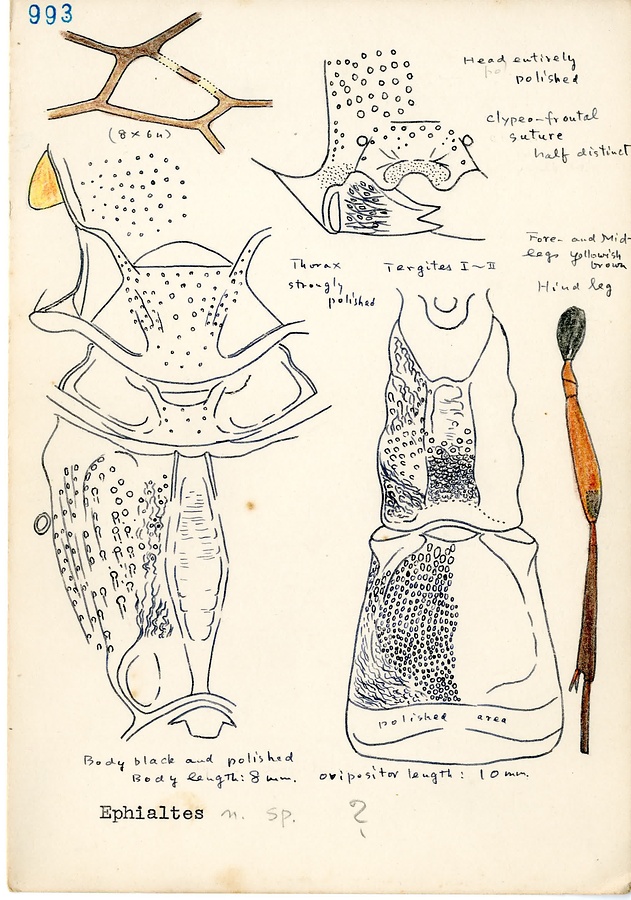 993
Head entirely
polished
clypeo-frontal
suture
half distinct
(8×6u)
Fore- and Mid-
legs yellowish
brown
Hind leg
Thorax
strongly
polished
Tergites I~II
polished area
Body black and polished
Body length: 8 mm. ovipositor length: 10 mm.
Ephialtes n. sp. ?